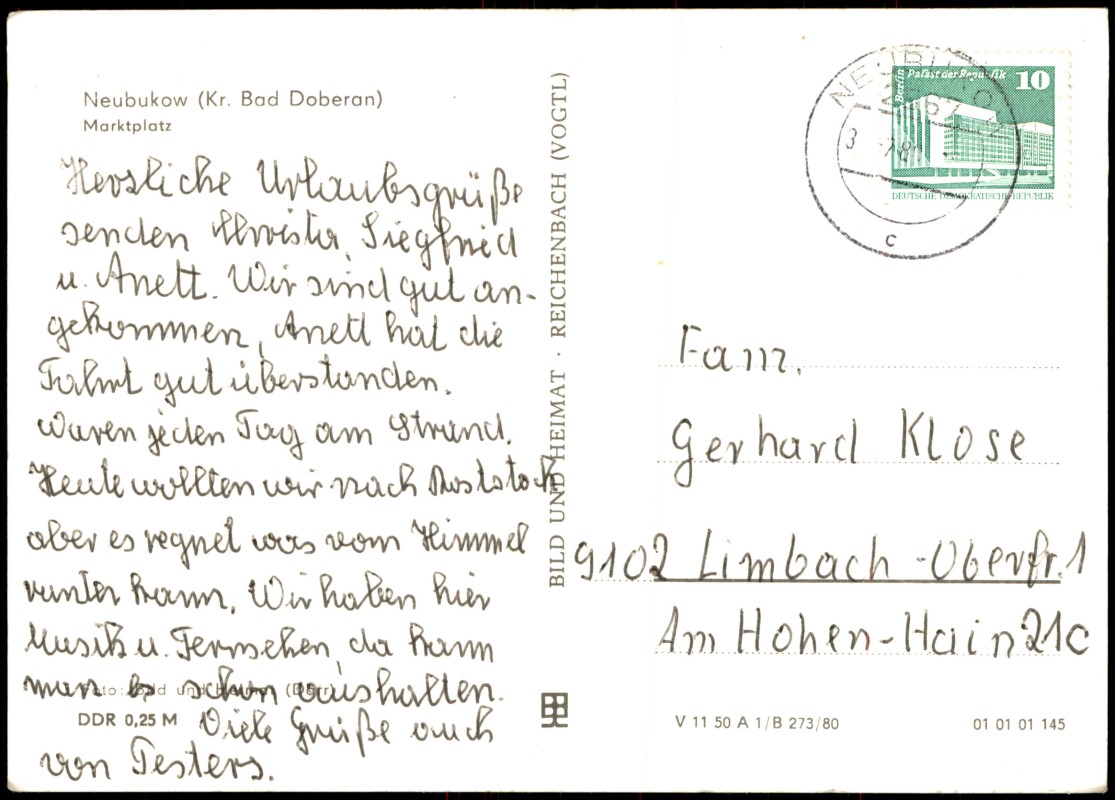 Neubukow (Kr. Bad Doberan)
Marktplatz
Herzliche Urlaubsgrüße
senden Christa, Siegfried
u. Anett. Wir sind gut an-
gekommen, Anett hat die
Fahrt gut überstanden.
Waren jeden Tag am Strand.
Heute wollten wir nach Rostock
aber es regnet was vom Himmel
runter kann. Wir haben hier
Musik u. Fernsehen, da kann
man es schon aushalten.
Foto: Bild und Heimat (Dörr)
DDR 0,25 M
Viele Grüße auch
von Testers.
BILD UND HEIMAT · REICHENBACH (VOGTL)
NEUBUKOW
2567
c
Berlin Palast der Republik 10
DEUTSCHE DEMOKRATISCHE REPUBLIK
Fam.
Gerhard Klose
9102 Limbach-Oberfr. 1
Am Hohen-Hain 21c
V 11 50 A 1/B 273/80
01 01 01 145